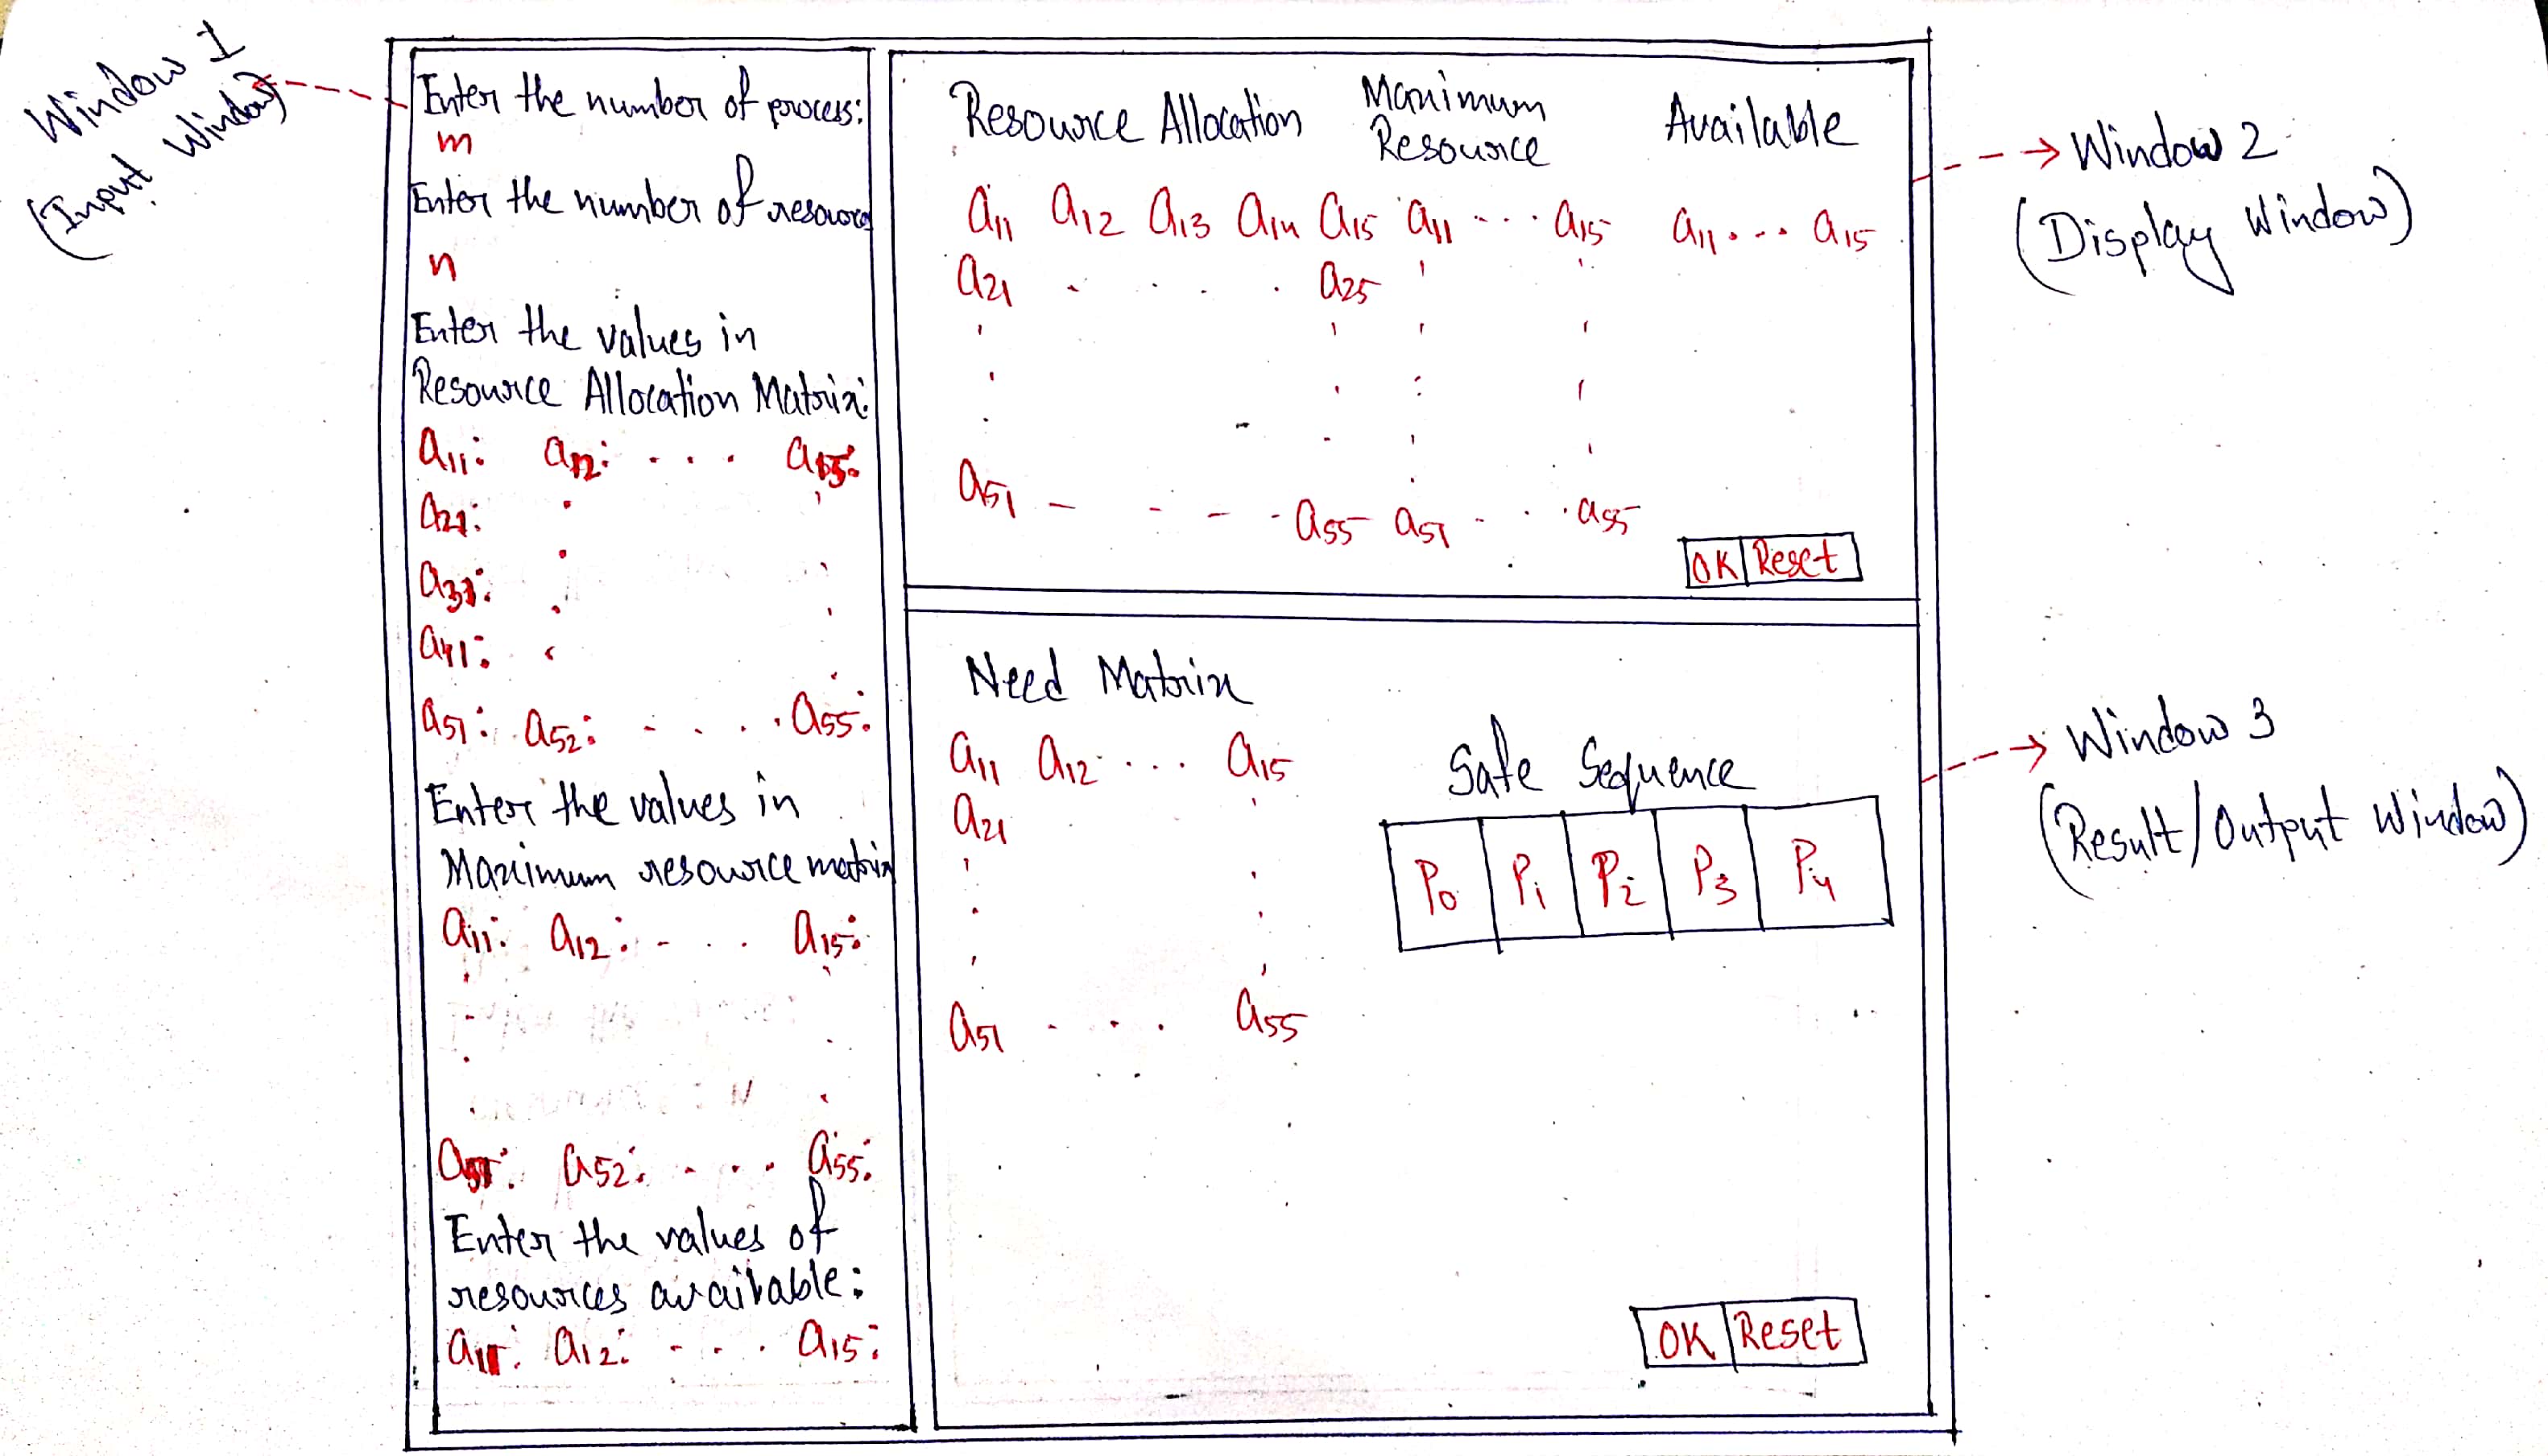 Window 1
(Input Window)
Enter the number of process:
m
Enter the number of resource
n
Enter the values in
Resource Allocation Matrix:
a11: a12: . . . a15:
a21:
a31:
a41:
a51: a52: . . . . a55:
Enter the values in
Maximum resource matrix
a11: a12: - . . a15:
a51: a52: . . . a55:
Enter the values of
resources available:
a11: a12: - . . a15:
Resource Allocation Maximum Resource Available
a11 a12 a13 a14 a15 a11 . . . a15 a11 . . . a15
a21 . . . . a25
a51 - - - - a55 a51 - . . . a55
OK Reset
Window 2
(Display Window)
Need Matrix
a11 a12 . . . a15
a21
a51 . . . a55
Safe Sequence
P0 P1 P2 P3 P4
OK Reset
Window 3
(Result/Output Window)